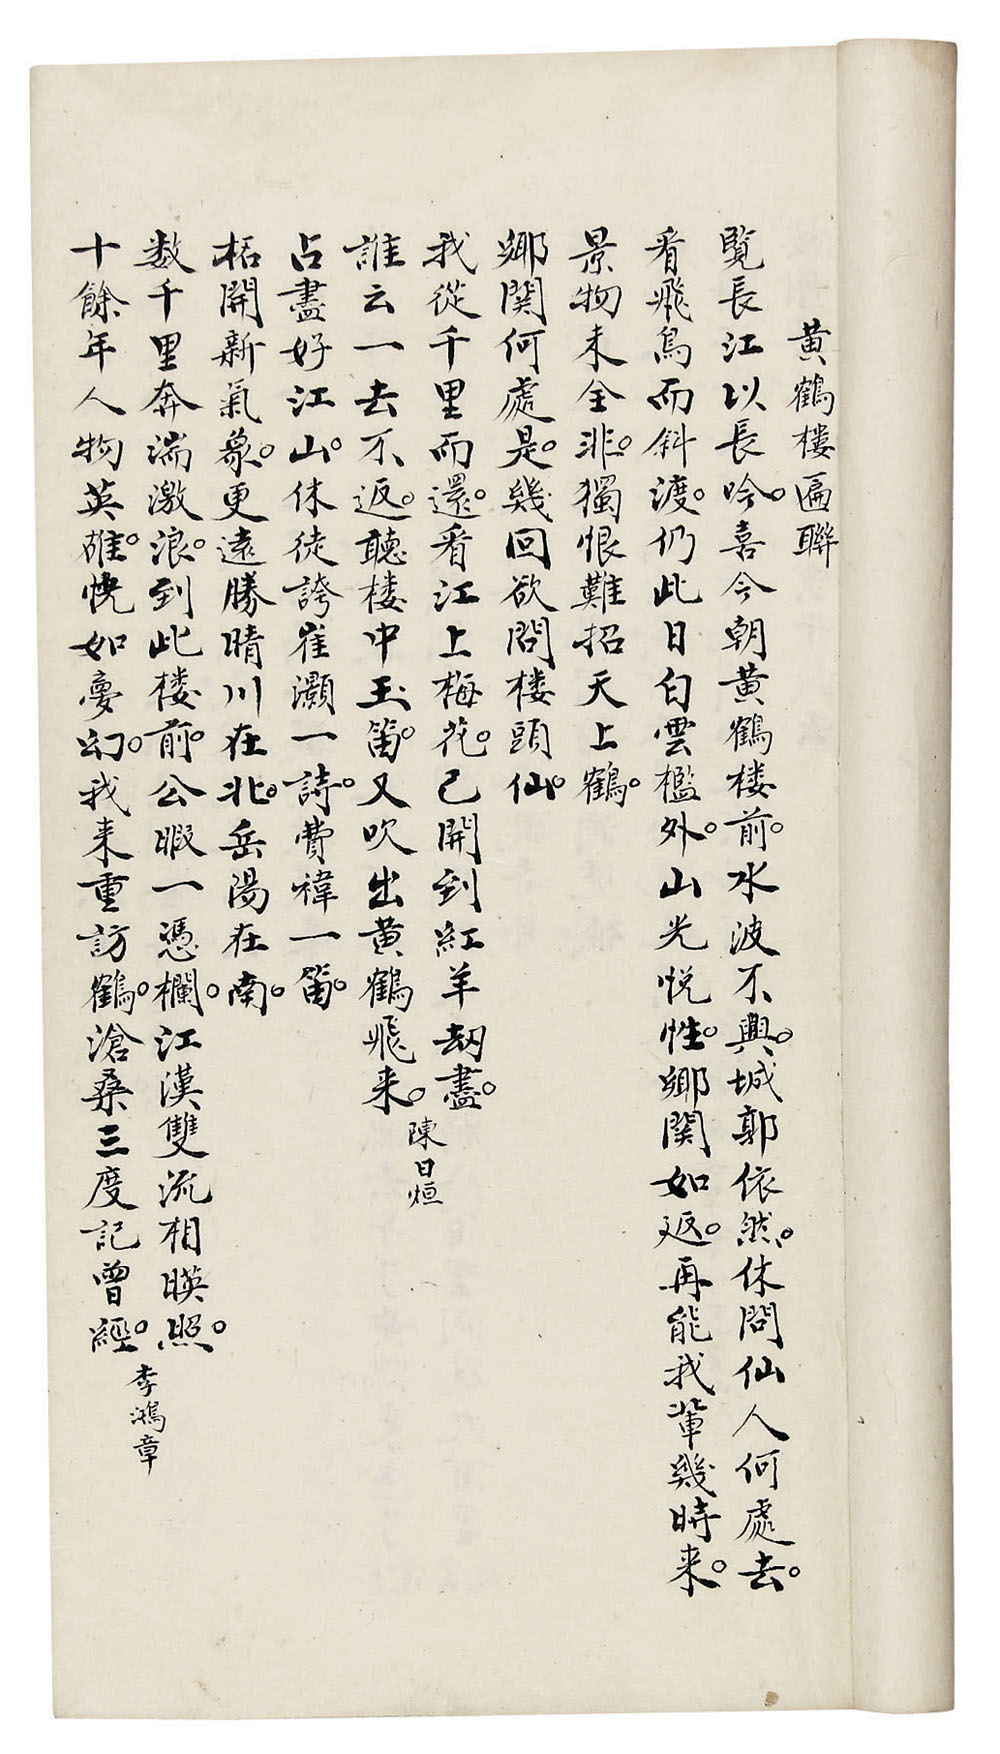 黄鶴樓匾聯
覽長江以長吟。喜今朝黄鶴楼前。水波不興。城郭依然。休問仙人何處去。
看飛鳥而斜渡。仍此日白雲檻外。山光悦性。鄉関如返。再能我輩幾時来。
景物未全非。獨恨難招天上鶴。
鄉関何處是。幾回欲問楼頭仙。
我從千里而還。看江上梅花。已開到紅羊劫盡。
誰云一去不返。聽楼中玉笛。又吹出黄鶴飛来。
陳日烜
占盡好江山。休徒誇崔灝一詩。費禕一笛。
柘開新氣象。更遠勝晴川在北。岳陽在南。
数千里奔湍激浪。到此楼前。公暇一憑欄。江漢雙流相暎照。
十餘年人物英雄。恍如夢幻。我来重訪鶴。滄桑三度記曾經。
李鴻章